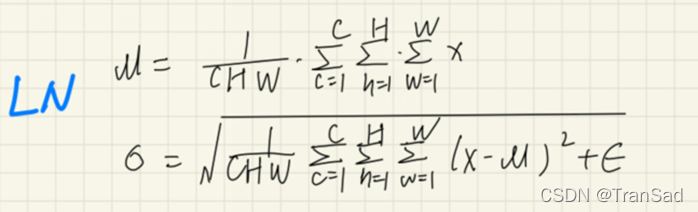 LN
μ = 1/(CHW) · Σ_{c=1}^{C} Σ_{h=1}^{H} · Σ_{w=1}^{W} x
σ = √(1/(CHW) Σ_{c=1}^{C} Σ_{h=1}^{H} Σ_{w=1}^{W} (x-μ)² + ϵ)
CSDN @TranSad